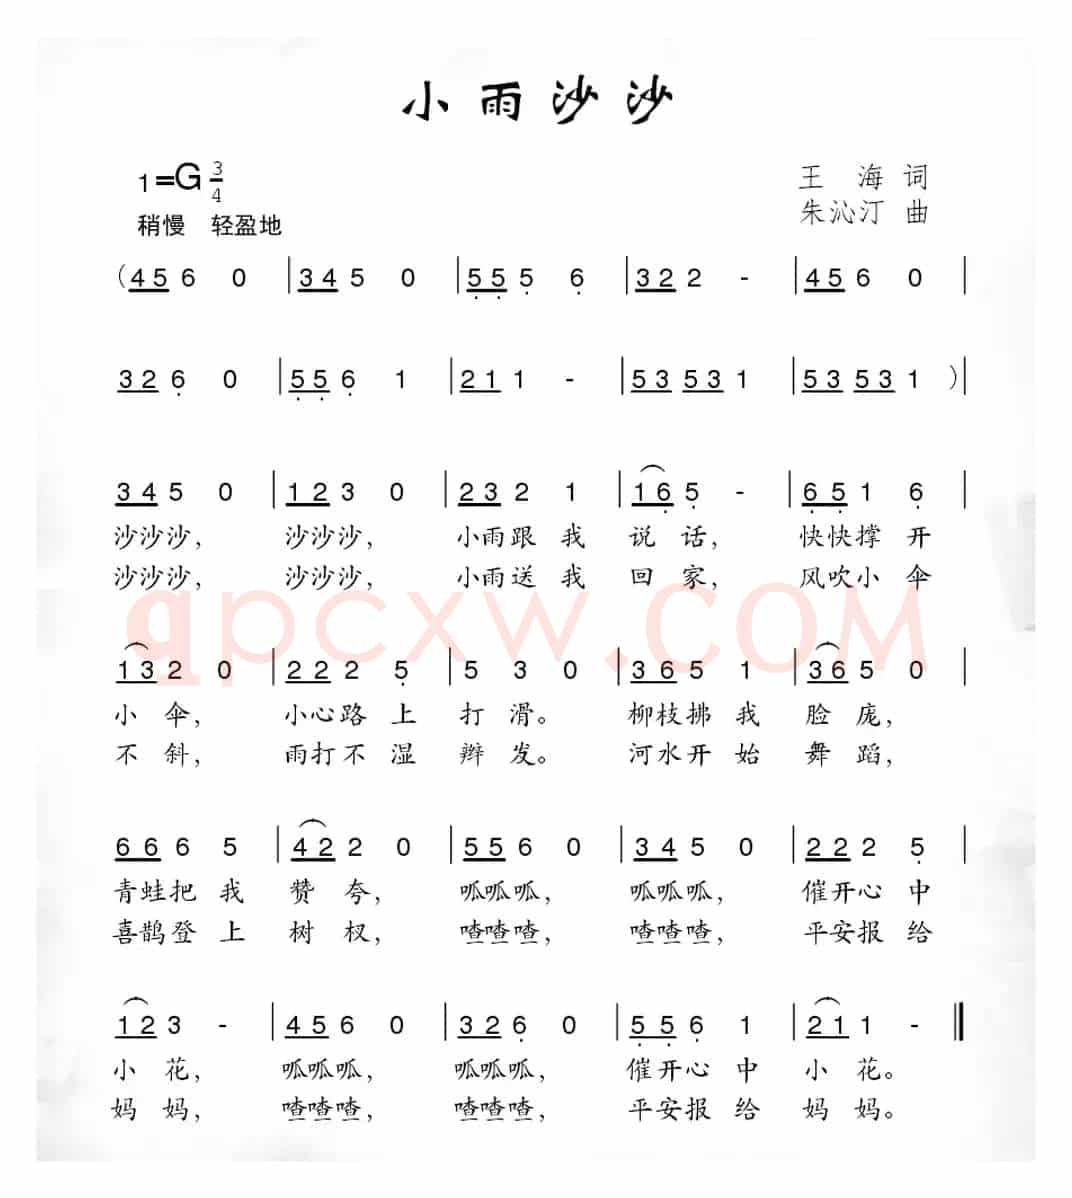 小雨沙沙
1=G 3/4
王 海 词
稍慢 轻盈地
朱沁汀 曲
(456 0 |345 0 |555 6 |322 - |456 0 |
326 0 |556 1 |211 - |53531 |53531 )|
345 0 |123 0 |232 1 |165 - |651 6 |
沙沙沙, 沙沙沙, 小雨跟 我 说 话, 快快撑 开
沙沙沙, 沙沙沙, 小雨送 我 回 家, 风吹小 伞
qpcxw.COM
132 0 |222 5 |5 3 0 |365 1 |365 0 |
小 伞, 小心路 上 打 滑。 柳枝拂 我 脸 庞,
不 斜, 雨打不 湿 辫 发。 河水开 始 舞 蹈,
666 5 |422 0 |556 0 |345 0 |222 5 |
青蛙把 我 赞 夸, 呱呱呱, 呱呱呱, 催开心 中
喜鹊登 上 树 杈, 喳喳喳, 喳喳喳, 平安报 给
123 - |456 0 |326 0 |556 1 |211 - ‖
小 花, 呱呱呱, 呱呱呱, 催开心 中 小 花。
妈 妈, 喳喳喳, 喳喳喳, 平安报 给 妈 妈。